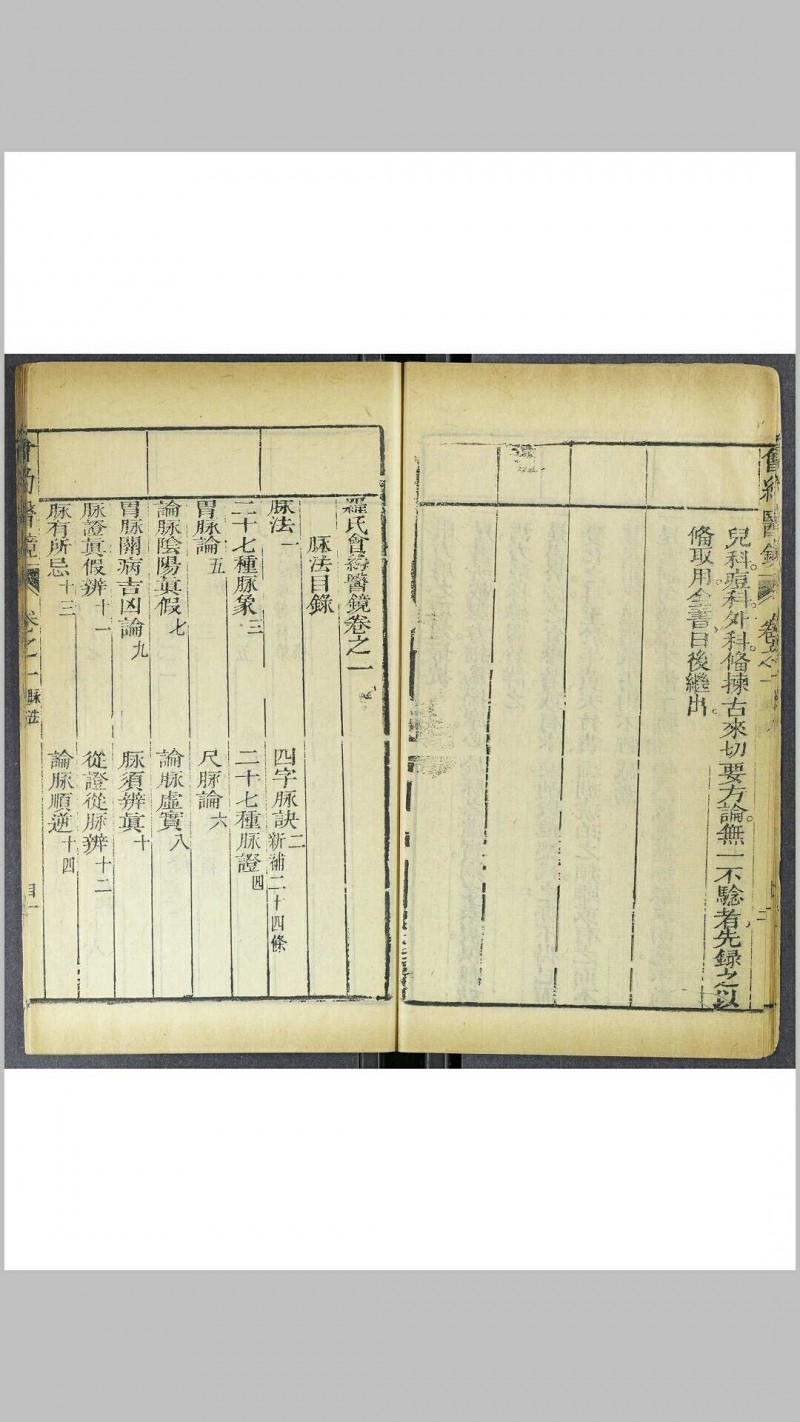 兒科。痘科。外科。俻揀古來切要方論。無一不驗者，先録之以
俻取用。全書日後繼出。
羅氏會約醫鏡卷之一
脉法目錄
脉法一
四字脉訣二新補二十四條
二十七種脉象三
二十七種脉證四
胃脉論五
尺脉論六
論脉陰陽眞假七
論脉虛實八
胃脉關病吉凶論九
脉須辨眞十
脉證眞假辨十一
從證從脉辨十二
脉有所忌十三
論脉順逆十四
卷之一 脉法